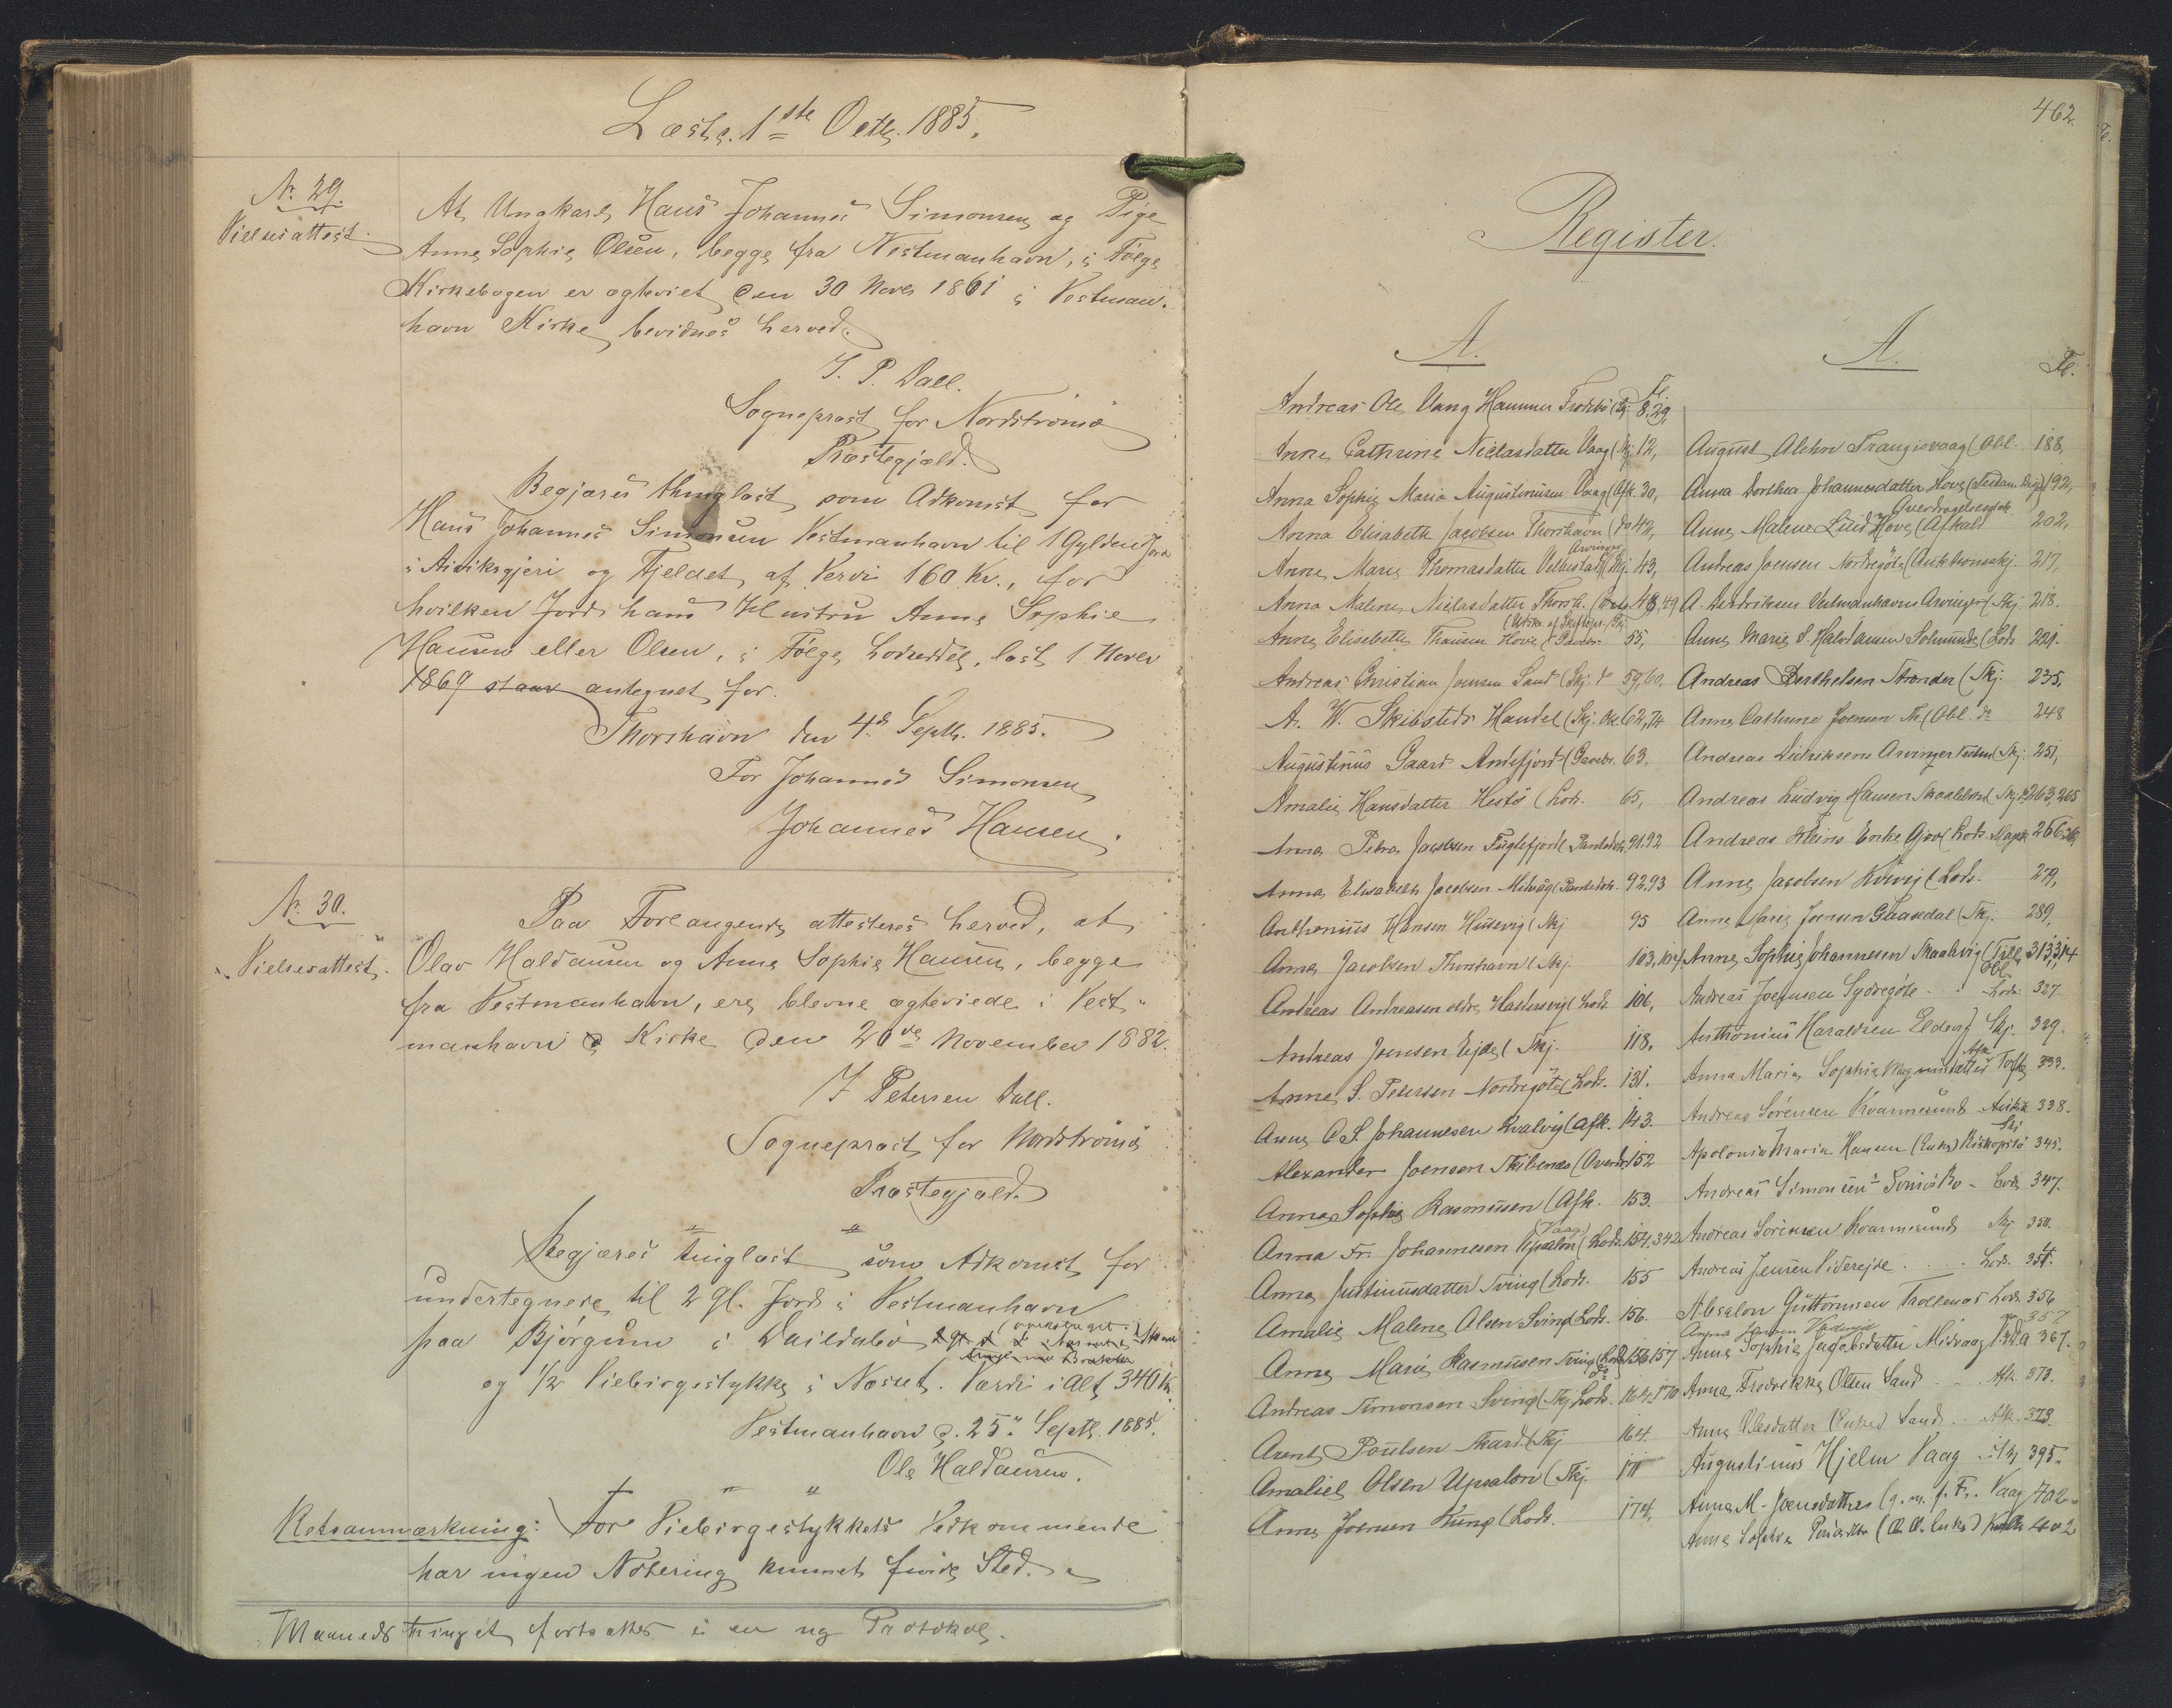 Læste 1ste Octb. 1885.
Nr. 29.
Vielsesattest.
At Ungkarl Hans Johannes Simonsen og Pige
Anne Sophie Olsen, begge fra Vestmanhavn, i Følge
Kirkebogen er ægteviet den 30 Novbr 1861 i Vestman-
havn Kirke bevidnes herved.
J. P. Dall.
Sognepræst for Nordströmö
Præstegjæld.
Begjæres thinglæst som Adkomst for
Hans Johannes Simonsen Vestmanhavn til 1 Gylden Jord
i og Fjeldet af Værdi 160 Kr., for
hvilken Jord hans Hustru Anne Sophie
Hansen eller Olsen, i Følge Lodseddel, læst 1 Novbr
1869 staar antegnet for.
Thorshavn den 4de Septb. 1885.
For Johannes Simonsen
Johannes Hansen.
Nr. 30.
Vielsesattest.
Paa Forlangende attesteres herved, at
Olav Haldansen og Anne Sophie Hansen, begge
fra Vestmanhavn, ere blevne ægteviede i Vest-
manhavn Kirke den 20de November 1882.
J Petersen Dall.
Sognepræst for Nordströmö
Præstegjæld.
Begjæres tinglæst som Adkomst for
undertegnede til 2 gl. Jord i Vestmanhavn
paa Bjørgum i (overstreget.)
og 1/2 Piebirgestykke i Næsset. Værdi i Alt 340 Kr.
Vestmanhavn d. 25. Septb. 1885.
Ole Haldansen.
Retsanmærkning: For Piebirgestykkets Vedkommende
har ingen Notering kunnet finde Sted.
Maanedstinget fortsættes i en ny Protokol.
462.
Register.
A.
Fl.
Andreas Ole Vang Hammer Frodebö (Skj. 8, 29,
Anne Cathrine Niclasdatter Vaag (Skj. 12,
Anna Sophie Maria Augustinusen Vaag (Afk. 30,
Anna Elisabeth Jacobsen Thorshavn (do 42,
Anne Marie Thomasdatter Velbestad (Skj. 43,
Arvinger
Anna Malene Niclasdatter Thorsh. 48, 49
Anne Elisebeth Thomsen Hove (Gavebr. 55,
Andreas Christian Joensen Sand (Skj. do 59, 60,
A. W. Skibsteds Handel (Skj. 62, 74
Augustinus Gaard Andefjord (Gavebr. 63.
Amalie Hansdatter Hestö (Lods. 65,
Anna Petra Jacobsen Fuglefjord (Panteobl. 91.92
Anna Elisabeth Jacobsen Midvaag (Panteobl. 92.93
Anthonius Hansen Husevig (Skj 95
Anna Jacobsen Thorshavn (Skj. 103, 104.
Andreas Andreasen ældre Haldersvig (Lods. 106,
Andreas Joensen Eide (Skj. 118,
Anne S. Petersen Nordregöte (Lods. 131.
Anne C. S. Johannesen Kvalvig (Afk. 143.
Alexander Joensen Skibenæs (Overdr. 152
Anne Sophie Rasmussen (Afk. 153.
Anna Fr. Johannesen Upsalon (Lods. 154, 342
(Vaag)
Anne Justinusdatter Sving (Lods. 155
Amalie Malene Olsen Sving (Lods. 156.
Anne Marie Rasmussen Sving (Lods. 156 157
Andreas Simonsen Sving (Skj. Lods. 164, 170
Arent Poulsen Skard (Skj 164.
Amaliel Olsen Upsalon (Skj. 171
Anne Joensen Kunö (Lods. 174,
A.
Fl.
August Alchow Trangisvaag (Obl. 188,
Anna Dorthea Johannesdatter Hove 192,
Overdragelsesdok.
Anne Malene Lüid Hove (Afkald 202,
Andreas Joensen Nordregöte (Auktionsskj. 217,
A. Derdriksen Vestmanhavns Arvinger (Skj. 218.
Anne Marie S. Haldansen Solmunde (Lods 221.
Andreas Berthelsen Strænder (Skj. 235,
Anne Cathrine Joensen Th. (Obl. do 248
Andreas Didriksens Arvinger (Skj. 251,
Andreas Ludvig Hansen Skaalebotn (Skj. 263, 265
Andreas Heins Enke Gjov (Lods. 266
Anne Jacobsen Kvivig (Lods. 279,
Anne Marie Joensen Gaasedal (Skj. 289,
Anne Sophie Johannesen Skaalevig 313, 314
Andreas Joensen Sydregöte - Lods. 327.
Anthonius Haraldsen Eldevig Skj. 329.
Anna Maria Sophia Magnusdatter Tofte 333.
Andreas Sörensen Kvannesund 338.
Apolonia Maria Hansen (Enke) Biskopstö 345.
Andreas Simonsen - Lods. 347.
Andreas Sörensen Kvannesund Skj 350.
Andreas Jensen Viderejde. . . . Lods. 354.
Absalon Guttormsen Trollenæs Lods. 356
357
Anne Sophie Jacobsdatter Midvaag 367.
Anna Fredrikke Olsen Sand - Afk. 373.
Anne Olesdatter (Enke) Sand - Afk. 373.
Augustinus Hjelm Vaag - Skj 395.
Anne M. Joensdatter (g. m. J. Fr. Vaag 402.
Anne Sophie 402